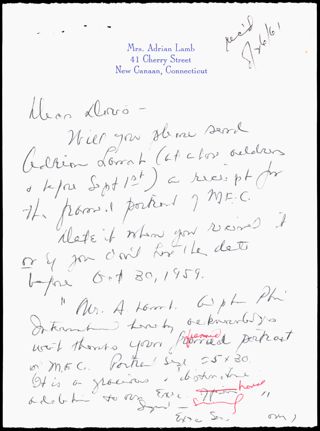 rec'd
9/6/61
Mrs. Adrian Lamb
41 Cherry Street
New Canaan, Connecticut
Dear Doris -
Will you please send
Adrian Lamb (at above address
& before Sept 1st) a receipt for
the framed portrait of M.E.C.
Date it when you received it
or if you don't have the date
before Oct 30, 1959.
"Mr. A Lamb. Alpha Phi
International hereby acknowledges
with thanks your framed portrait
of M.E.C. Portrait size 25 x 30.
It is a gracious & distinctive
addition to our Exec house "
Signed -
Exec Sec.